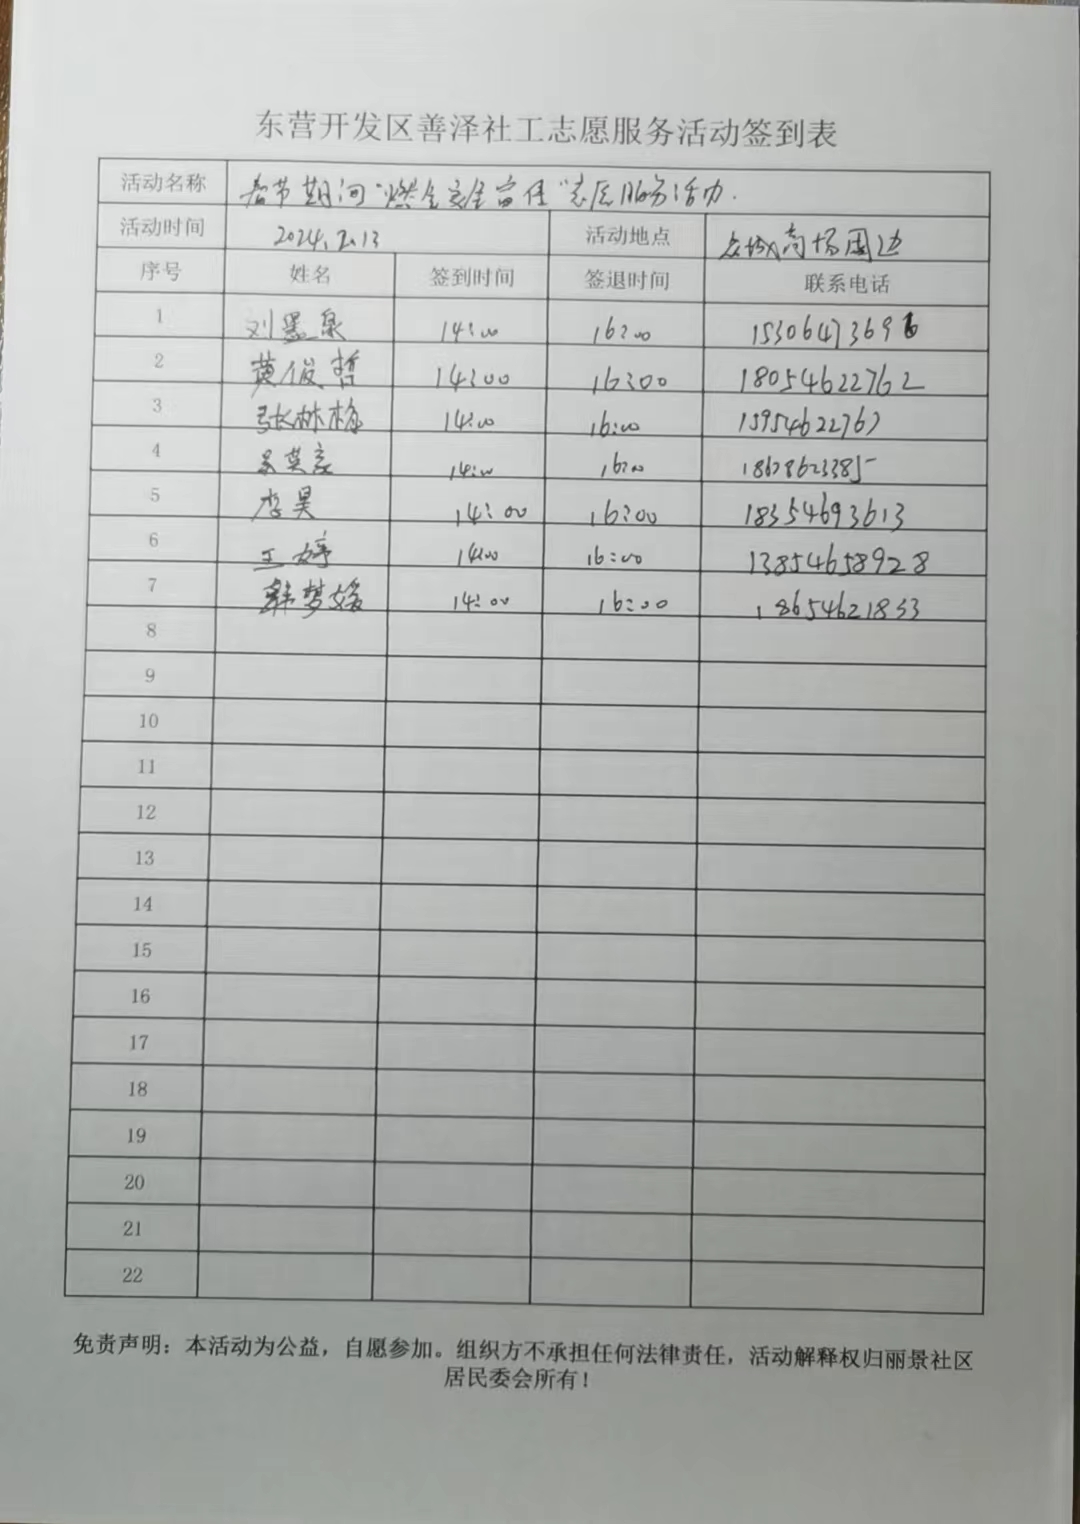 东营开发区善泽社工志愿服务活动签到表
活动名称 春节期间"燃全安全宣传"志愿服务活动.
活动时间 2024.2.13 活动地点 众城商场周边
序号 姓名 签到时间 签退时间 联系电话
1 刘墨泉 14:00 16:00
2 黄俊哲 14:00 16:00 18054622762
3 张林梅 14:00 16:00 15954622767
4 14:00 16:00 18678623385
5 李昊 14:00 16:00 18354693613
6 王婷 14:00 16:00 13854658928
7 韩梦媛 14:00 16:00 18654621833
8
9
10
11
12
13
14
15
16
17
18
19
20
21
22
免责声明：本活动为公益，自愿参加。组织方不承担任何法律责任，活动解释权归丽景社区
居民委会所有！